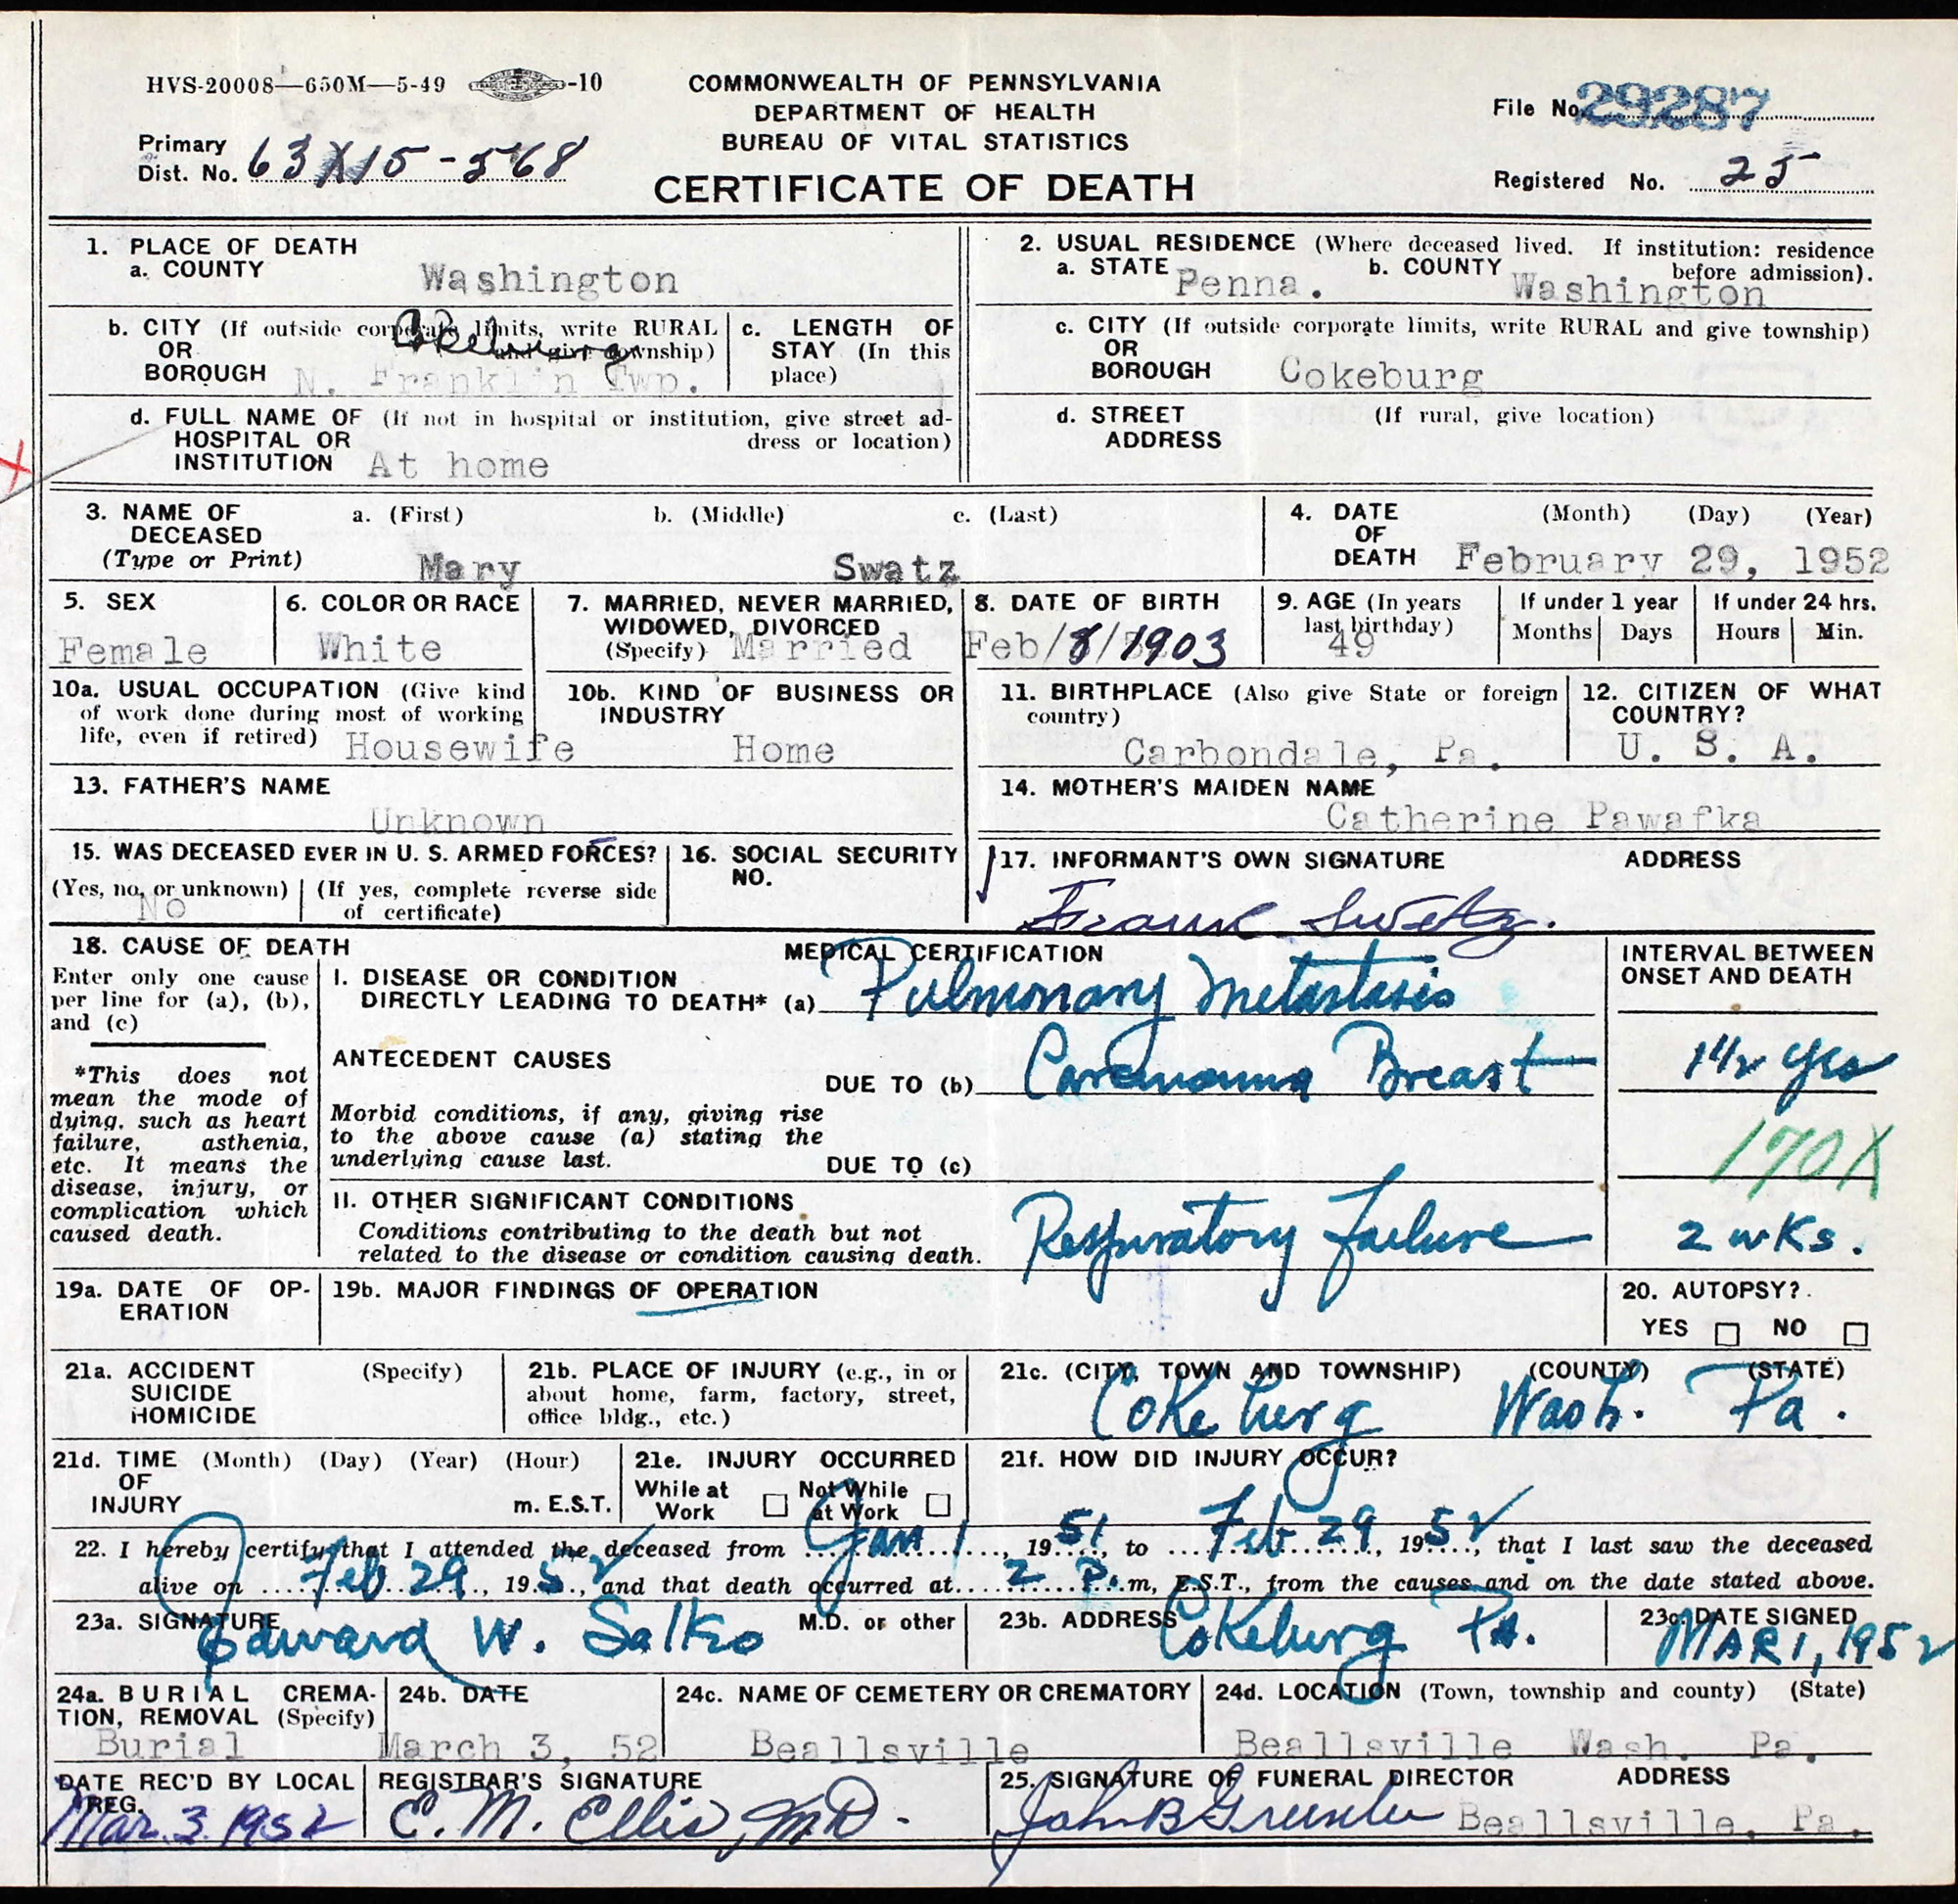 HVS-20008—650M—5-49 -10
COMMONWEALTH OF PENNSYLVANIA
DEPARTMENT OF HEALTH
BUREAU OF VITAL STATISTICS
CERTIFICATE OF DEATH
File No. 29287
Primary
Dist. No. 63X15-568
Registered No. 25
1. PLACE OF DEATH
a. COUNTY Washington
b. CITY (If outside corporate limits, write RURAL
OR and give township)
BOROUGH N. Franklin Twp.
Cokeburg
c. LENGTH OF
STAY (In this
place)
d. FULL NAME OF (If not in hospital or institution, give street ad-
HOSPITAL OR dress or location)
INSTITUTION At home
2. USUAL RESIDENCE (Where deceased lived. If institution: residence
before admission).
a. STATE Penna. b. COUNTY Washington
c. CITY (If outside corporate limits, write RURAL and give township)
OR
BOROUGH Cokeburg
d. STREET (If rural, give location)
ADDRESS
3. NAME OF a. (First) b. (Middle) c. (Last)
DECEASED
(Type or Print) Mary Swatz
4. DATE (Month) (Day) (Year)
OF
DEATH February 29, 1952
5. SEX
Female
6. COLOR OR RACE
White
7. MARRIED, NEVER MARRIED,
WIDOWED, DIVORCED
(Specify) Married
8. DATE OF BIRTH
Feb/8/1903
9. AGE (In years
last birthday)
49
If under 1 year
Months Days
If under 24 hrs.
Hours Min.
10a. USUAL OCCUPATION (Give kind
of work done during most of working
life, even if retired) Housewife
10b. KIND OF BUSINESS OR
INDUSTRY
Home
11. BIRTHPLACE (Also give State or foreign
country)
Carbondale, Pa.
12. CITIZEN OF WHAT
COUNTRY?
U. S. A.
13. FATHER'S NAME
Unknown
14. MOTHER'S MAIDEN NAME
Catherine Pawafka
15. WAS DECEASED EVER IN U. S. ARMED FORCES?
(Yes, no, or unknown) (If yes, complete reverse side
of certificate)
No
16. SOCIAL SECURITY
NO.
17. INFORMANT'S OWN SIGNATURE ADDRESS
Frank Swetz.
18. CAUSE OF DEATH
Enter only one cause
per line for (a), (b),
and (c)
*This does not
mean the mode of
dying, such as heart
failure, asthenia,
etc. It means the
disease, injury, or
complication which
caused death.
MEDICAL CERTIFICATION
I. DISEASE OR CONDITION
DIRECTLY LEADING TO DEATH* (a) Pulmonary Metastasis
ANTECEDENT CAUSES
DUE TO (b) Carcinoma Breast
Morbid conditions, if any, giving rise
to the above cause (a) stating the
underlying cause last.
DUE TO (c)
II. OTHER SIGNIFICANT CONDITIONS
Conditions contributing to the death but not
related to the disease or condition causing death.
Respiratory failure
INTERVAL BETWEEN
ONSET AND DEATH
1 1/2 yrs
170X
2 wks.
19a. DATE OF OP-
ERATION
19b. MAJOR FINDINGS OF OPERATION
20. AUTOPSY?
YES NO
21a. ACCIDENT (Specify)
SUICIDE
HOMICIDE
21b. PLACE OF INJURY (e.g., in or
about home, farm, factory, street,
office bldg., etc.)
21c. (CITY, TOWN AND TOWNSHIP) (COUNTY) (STATE)
Cokeburg Wash. Pa.
21d. TIME (Month) (Day) (Year) (Hour)
OF
INJURY m. E.S.T.
21e. INJURY OCCURRED
While at Not While
Work at Work
21f. HOW DID INJURY OCCUR?
22. I hereby certify that I attended the deceased from Jan 1, 1951, to Feb 29, 1952, that I last saw the deceased
alive on Feb 29, 1952, and that death occurred at 2 P.m, E.S.T., from the causes and on the date stated above.
23a. SIGNATURE M.D. or other
Edward W. Salko
23b. ADDRESS
Cokeburg Pa.
23c. DATE SIGNED
MAR 1, 1952
24a. BURIAL CREMA-
TION, REMOVAL (Specify)
Burial
24b. DATE
March 3, 52
24c. NAME OF CEMETERY OR CREMATORY
Beallsville
24d. LOCATION (Town, township and county) (State)
Beallsville Wash. Pa.
DATE REC'D BY LOCAL
REG.
Mar. 3. 1952
REGISTRAR'S SIGNATURE
E. M. Ellis, MD.
25. SIGNATURE OF FUNERAL DIRECTOR ADDRESS
John B Beallsville, Pa.